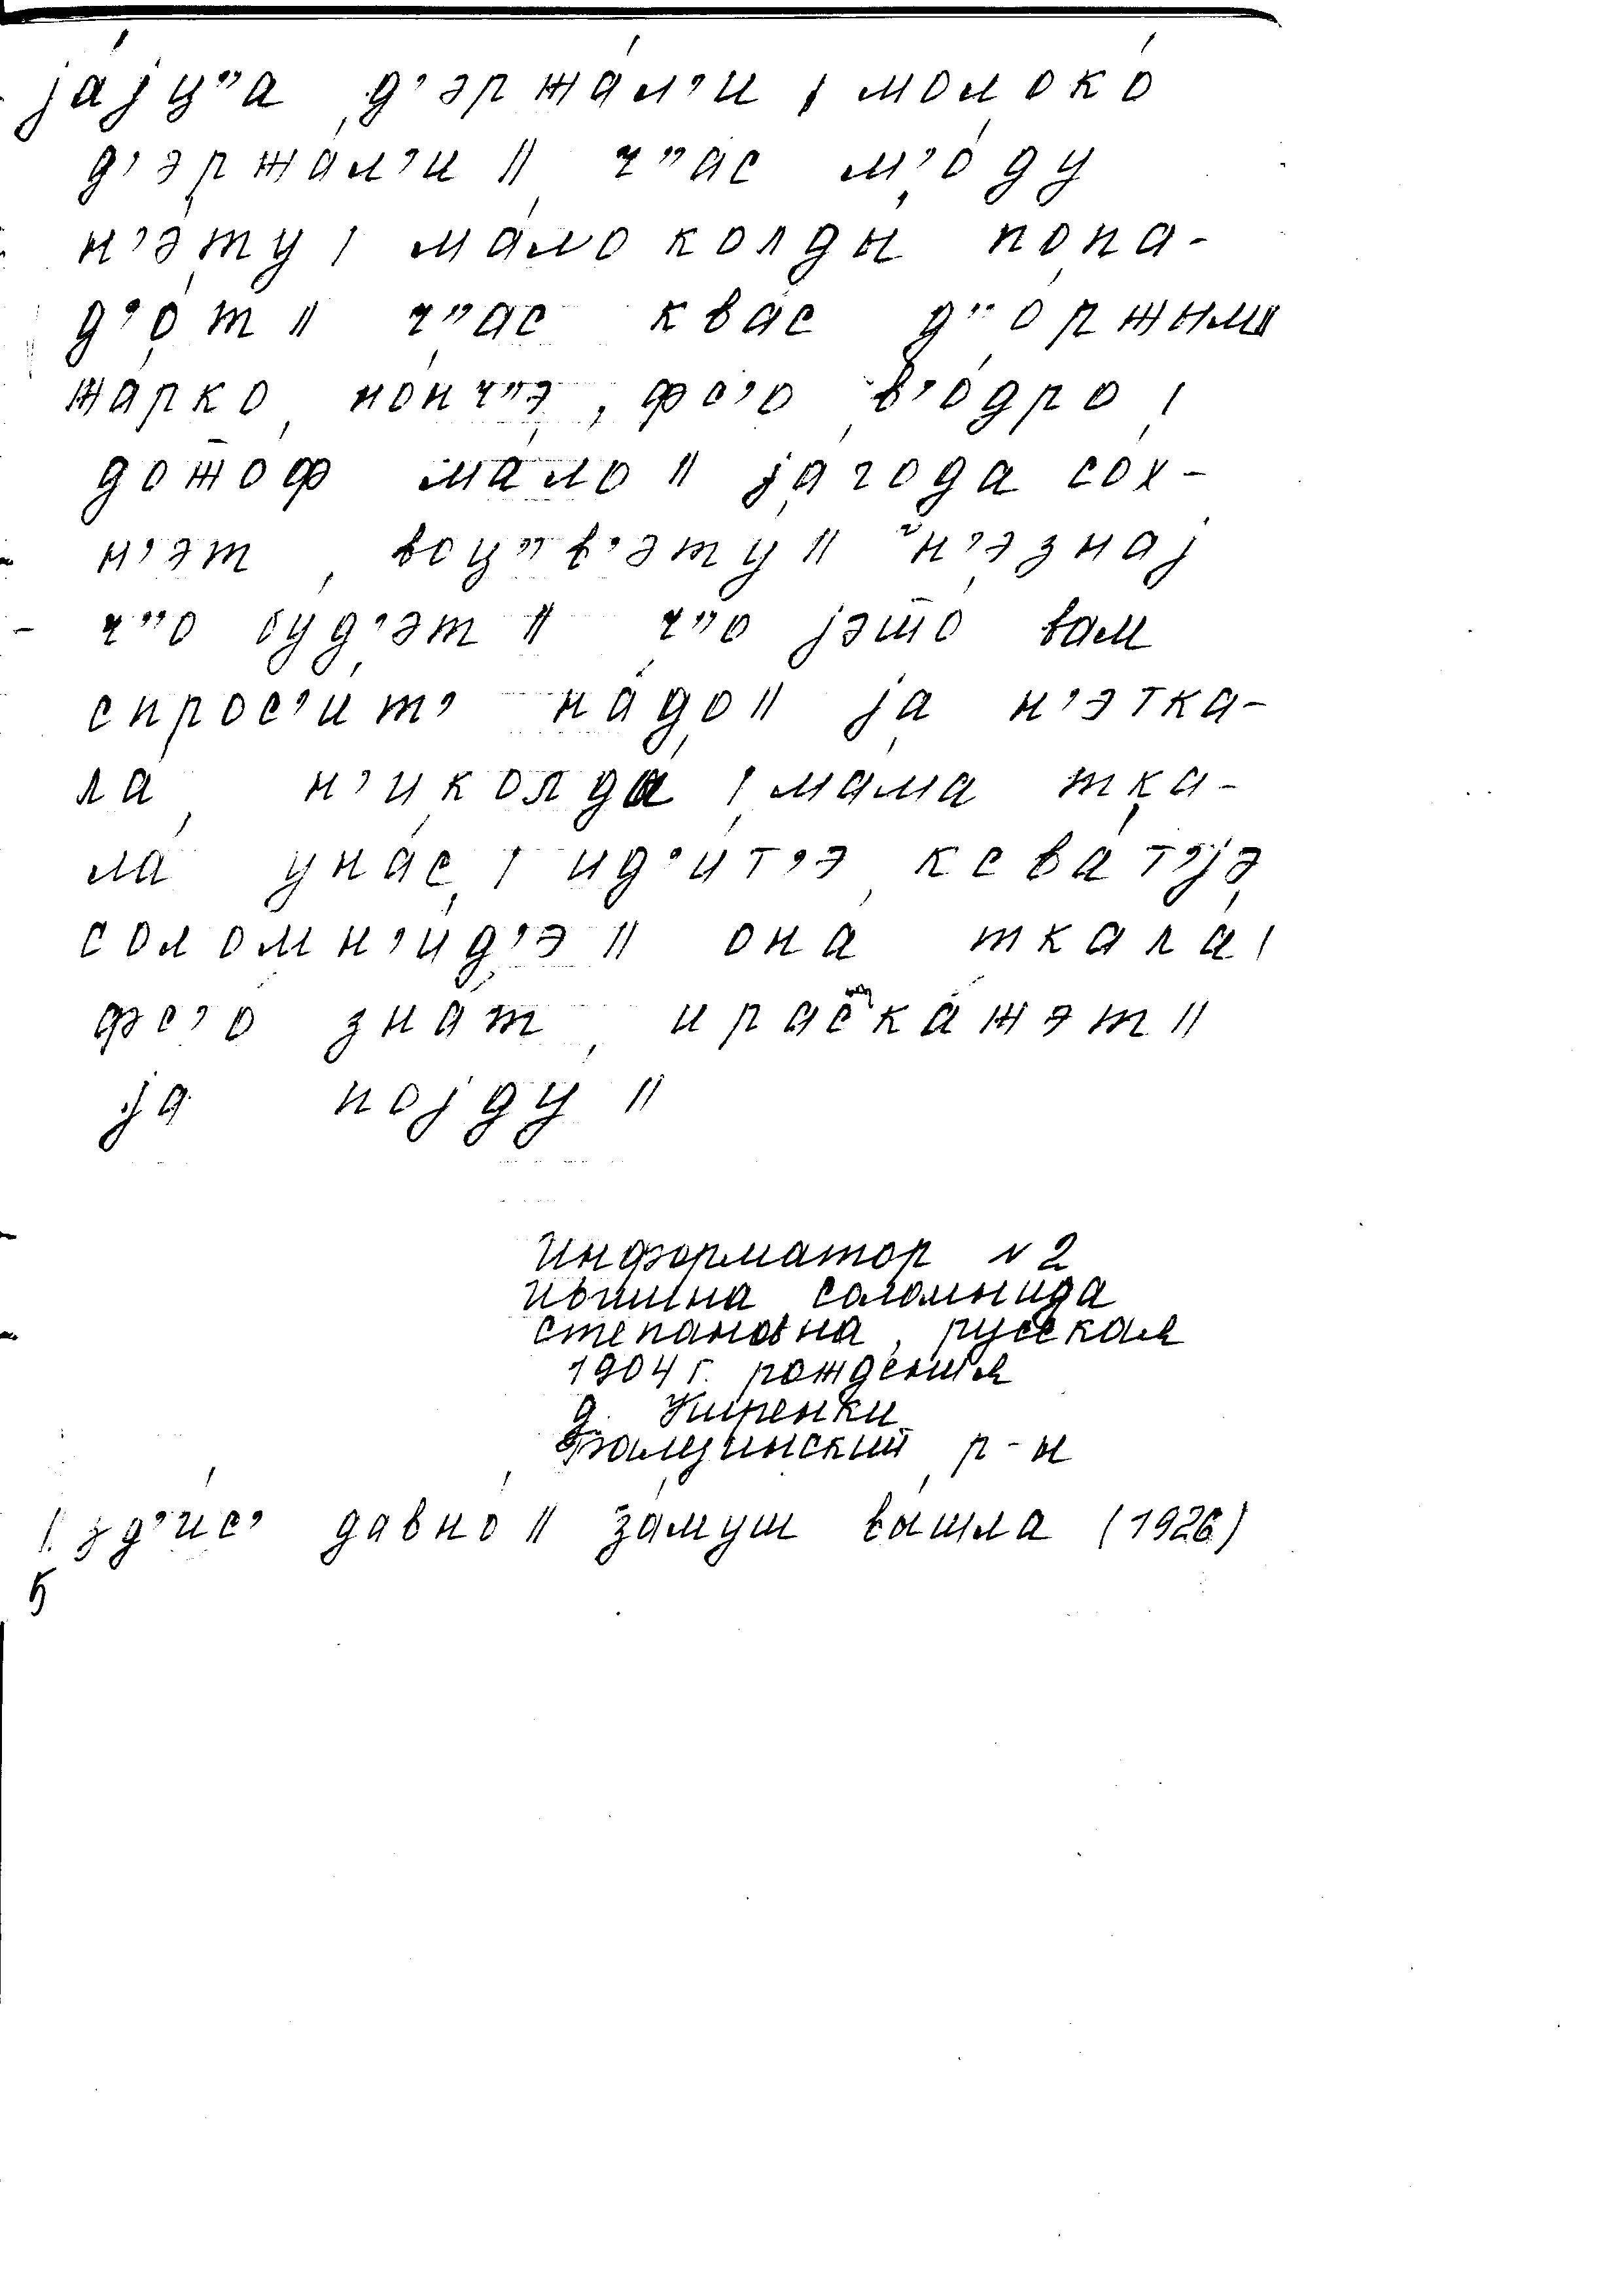 jа́jц"а д'эржа́л'и | молоко́
д'эржа́л'и || ч"ас м'о́ду
н'э́ту | ма́ло колды́ попа-
д'о́т || ч"ас квас д"о́ржым ||
жа́рко но́нч"э, фс'о в'о́дро |
дожо́ф ма́ло || jа́года со́х-
н'эт воц"в'эту́ || н'эзнаj
ч"о бу́д'эт || ч"о jэто́ вам
спрос'и́т' на́до || jа н'этка-
ла́ н'иколда́ | ма́ма тка-
ла́ уна́с | ид'и́т'э ксва́т'jэ
соломн'и́д'э || она́ ткала́ |
фс'о зна́т ираска́жэт ||
jа поjду́ ||
Информатор № 2
Соломнида
Степановна, русская
1904 г. рождения
д.
Балезинский р-н
1. зд'ис' давно́ || за́муш вы́шла (1926)
5